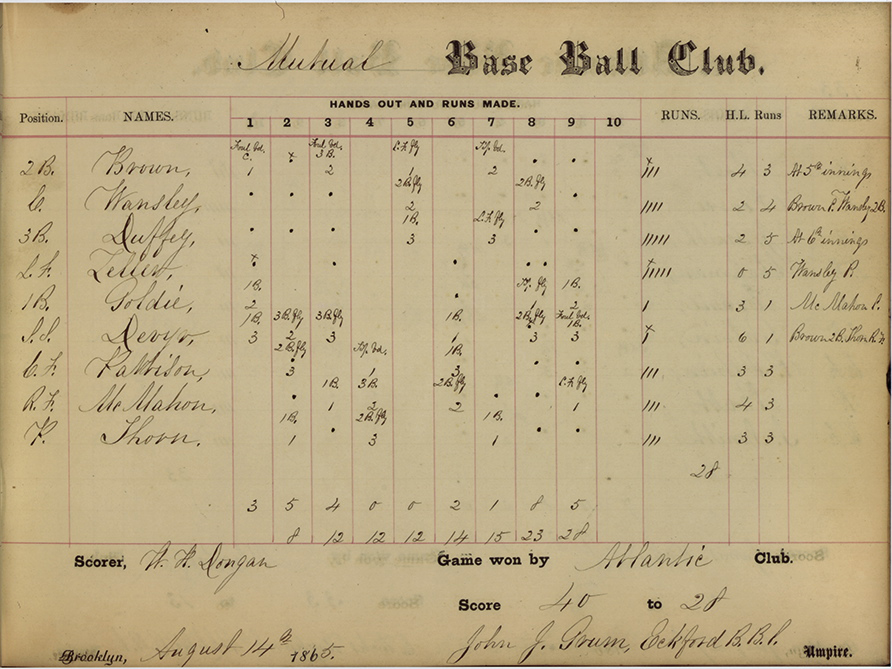 Mutual Base Ball Club.
HANDS OUT AND RUNS MADE.
Position. NAMES. 1 2 3 4 5 6 7 8 9 10 RUNS. H.L. Runs REMARKS.
Foul Bd. Foul Bd. L.F. fly
C. x 3 B. . .
2 B. Brown, 1 2 1 2 4 3 At 5th innings
2B. fly 2B. fly
C. Wansley, . . . 2 2 //// 2 4 Brown P. Wansley 2B.
1B. L.F. fly
3 B. Duffey, . . . 3 3 ///// 2 5 At 6th innings
L. F. Zeller, x . . . . . 0 5 Wansley P.
1B. fly 1B.
1 B. Goldie, 2 . 1 2 / 3 1 McMahon P.
1B. 3B. fly 3B. fly 1B. 2B. fly Foul Bd. 1B.
S.S. Devyr, 3 2 3 1 3 3 6 1
2B. fly 1B.
C. F. Pattison, . 3 1 3 . . /// 3 3
1B. 3B. 2B. fly C.F. fly
R. F. McMahon, . 1 2 2 . 1 /// 4 3
1B. 2B. fly 1B.
P. Thorn, 1 . 3 1 . . /// 3 3
28
3 5 4 0 0 2 1 8 5
8 12 12 12 14 15 23 28
Scorer, W. H. Dongan Game won by Atlantic Club.
Score 40 to 28
Brooklyn, August 14th 1865. John J. Grum, Eckford B.B.C. Umpire.